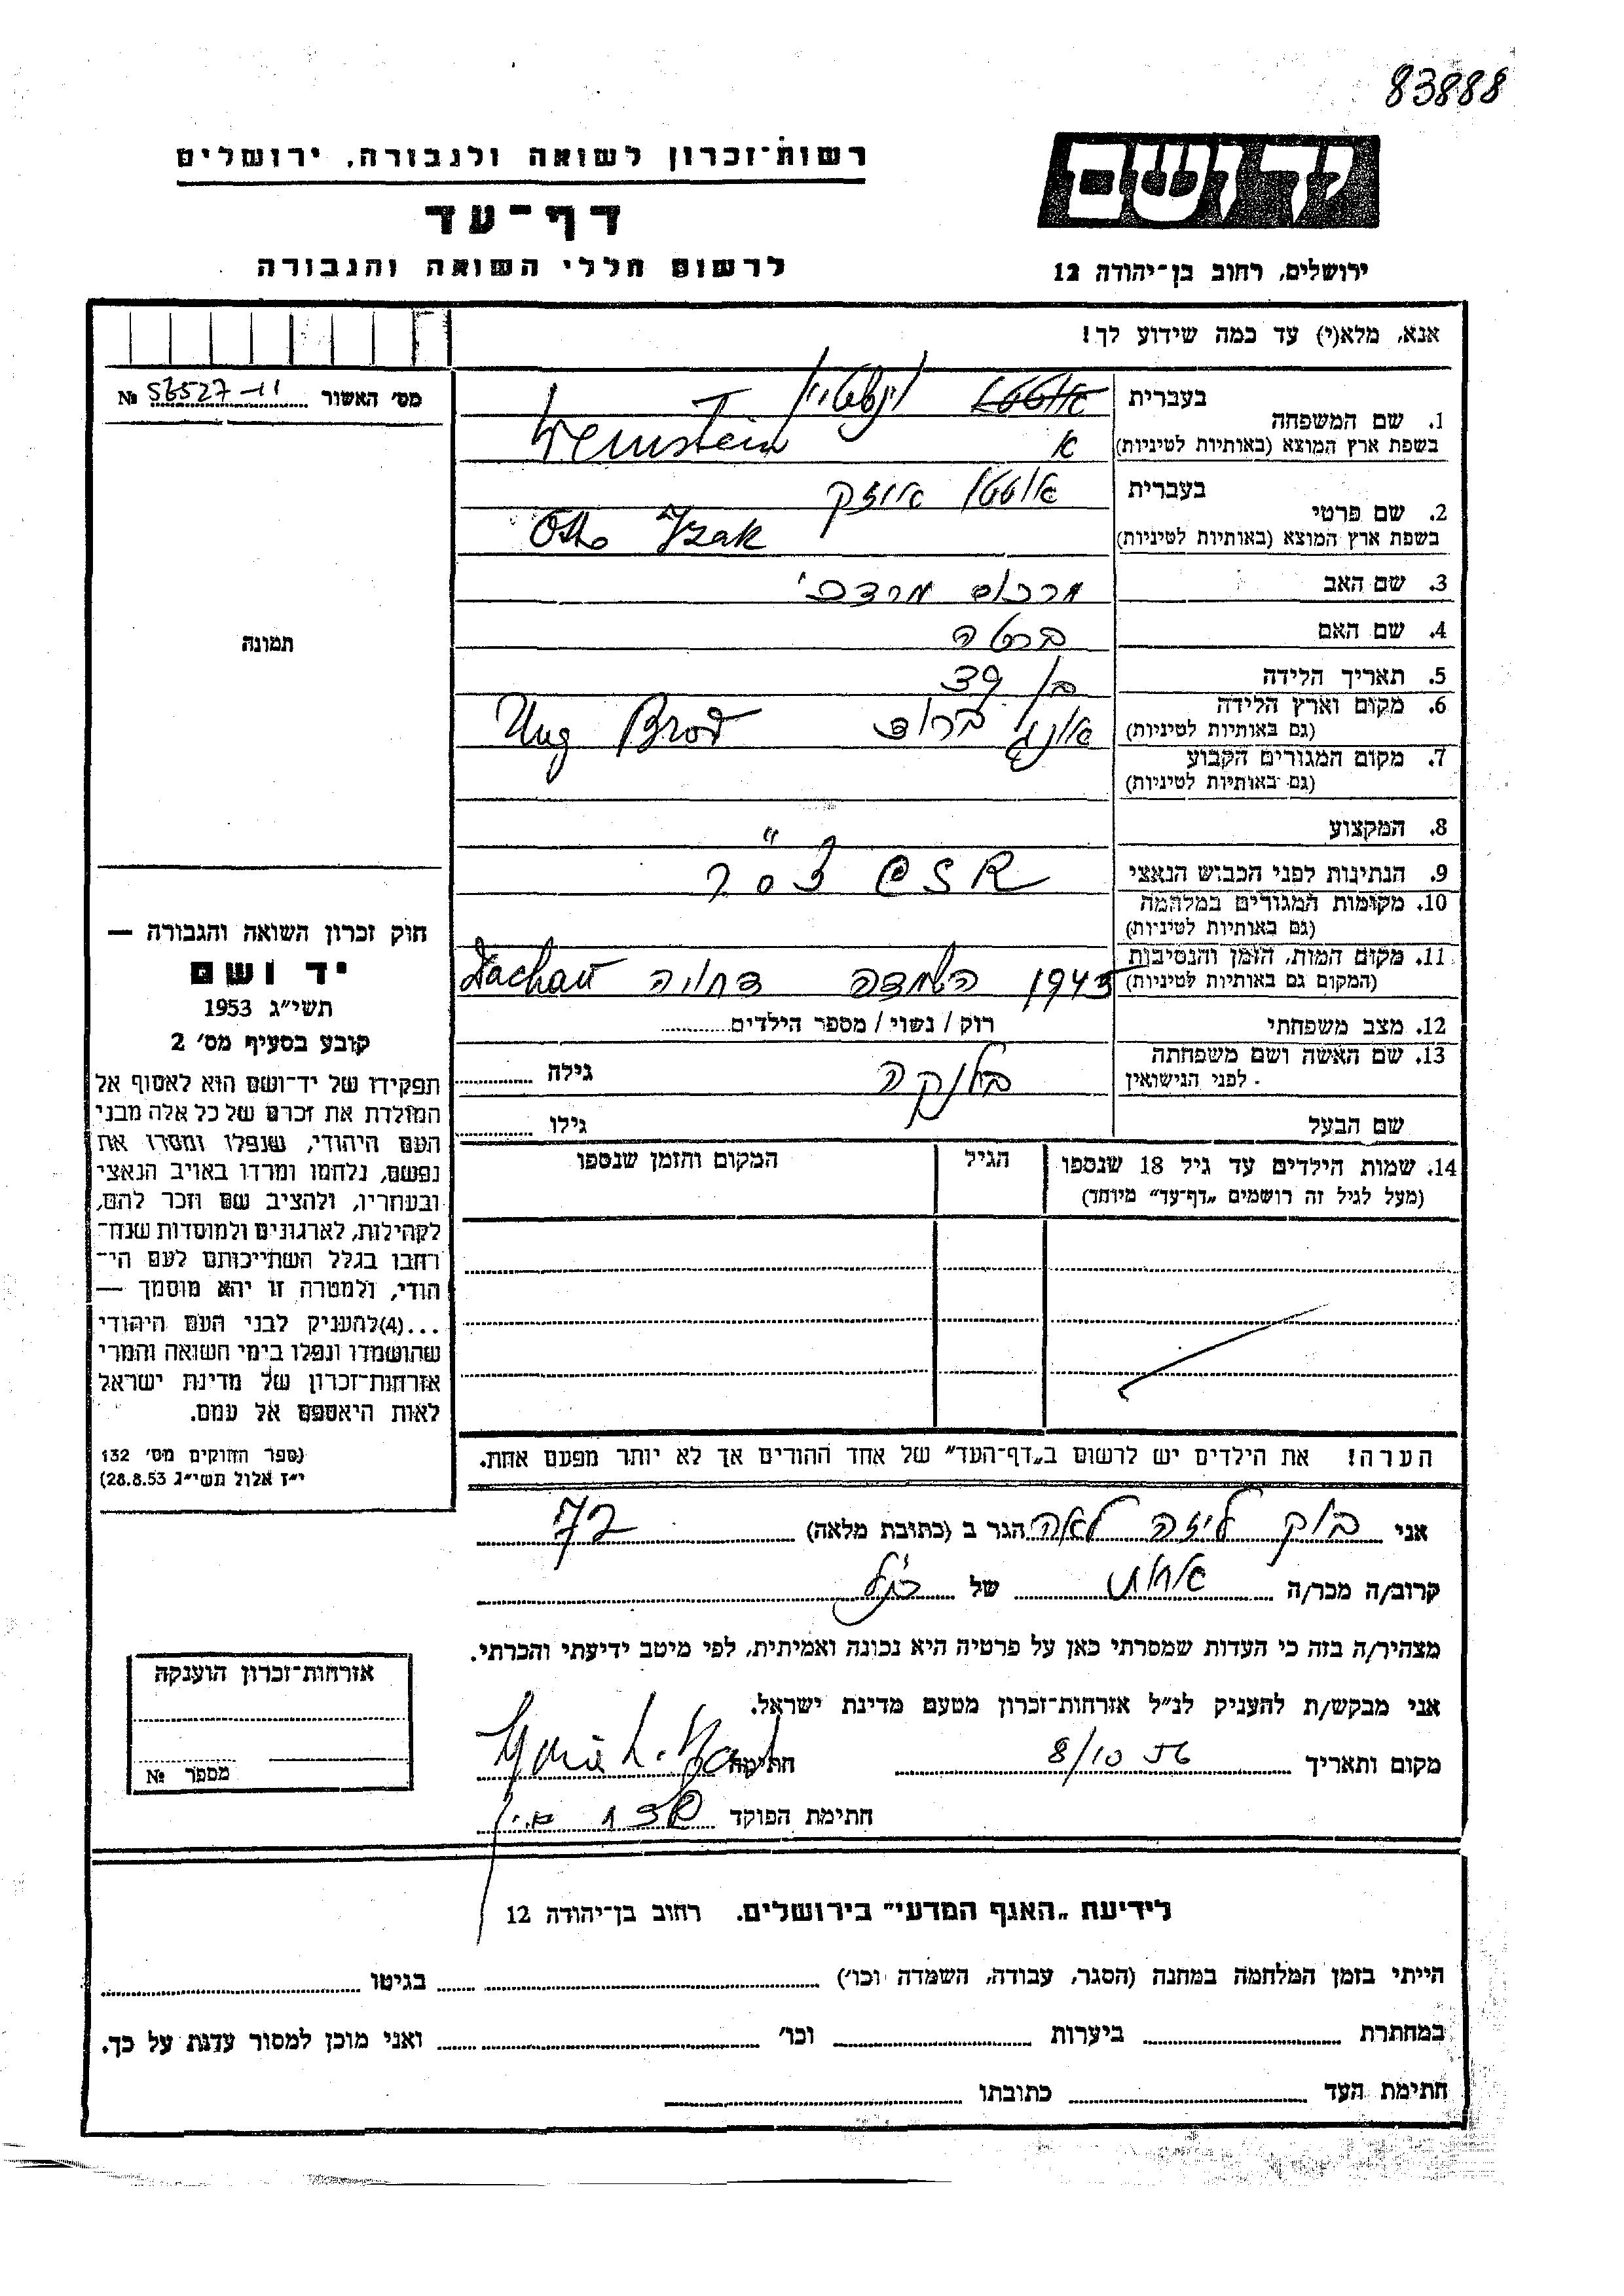 83888
ידושם
רשות־זכרון לשואה ולגבורה, ירושלים
דף־עד
לרשום חללי השואה והגבורה
ירושלים, רחוב בן־יהודה 12
אנא, מלא(י) עד כמה שידוע לך!
מס׳ האשור № 56527-11
1. שם המשפחה
בעברית
בשפת ארץ המוצא (באותיות לטיניות)
2. שם פרטי
בעברית אוטטו איזק
בשפת ארץ המוצא (באותיות לטיניות) Otto Izak
3. שם האב מרכוס מרדכי
4. שם האם ברטה
5. תאריך הלידה בן 39
6. מקום וארץ הלידה
(גם באותיות לטיניות) אונג ברוד Ung Brod
7. מקום המגורים הקבוע
(גם באותיות לטיניות)
8. המקצוע "
9. הנתינות לפני הכבוש הנאצי
10. מקומות המגורים במלחמה
(גם באותיות לטיניות)
11. מקום המות, הזמן והנסיבות
(המקום גם באותיות לטיניות) 1943 השמדה דחויה Dachau
12. מצב משפחתי רוק / נשוי / מספר הילדים
13. שם האשה ושם משפחתה
לפני הנישואין בלנקה גילה
שם הבעל גילו
14. שמות הילדים עד גיל 18 שנספו
(מעל לגיל זה רושמים „דף־עד״ מיוחד)
הגיל
המקום והזמן שנספו
תמונה
חוק זכרון השואה והגבורה —
יד ושם
תשי״ג 1953
קובע בסעיף מס׳ 2
תפקידו של יד־ושם הוא לאסוף אל
המולדת את זכרם של כל אלה מבני
העם היהודי, שנפלו ומסרו את
נפשם, נלחמו ומרדו באויב הנאצי
ובעוזריו, ולהציב שם וזכר להם,
לקהילות, לארגונים ולמוסדות שנח־
רחבו בגלל השתייכותם לעם הי־
הודי, ולמטרה זו יהא מוסמך —
...(4)להעניק לבני העם היהודי
שהושמדו ונפלו בימי השואה והמרי
אזרחות־זכרון של מדינת ישראל
לאות היאספם אל עמם.
(ספר החוקים מס׳ 132
י״ז אלול תשי״ג 28.8.53)
הערה! את הילדים יש לרשום ב„דף־העד״ של אחד ההורים אך לא יותר מפעם אחת.
אני בוק ליזה לאה הגר ב (כתובת מלאה)
קרוב/ה מכר/ה אחות של כנ״ל
מצהיר/ה בזה כי העדות שמסרתי כאן על פרטיה היא נכונה ואמיתית, לפי מיטב ידיעתי והכרתי.
אני מבקש/ת להעניק לנ״ל אזרחות־זכרון מטעם מדינת ישראל.
מקום ותאריך 8/10 56 חתימה
חתימת הפוקד
אזרחות־זכרון הוענקה
מספר №
לידיעת „האגף המדעי״ בירושלים. רחוב בן־יהודה 12
הייתי בזמן המלחמה במחנה (הסגר, עבודה, השמדה וכו׳) בגיטו
במחתרת ביערות וכו׳ ואני מוכן למסור עדות על כך.
חתימת העד כתובתו